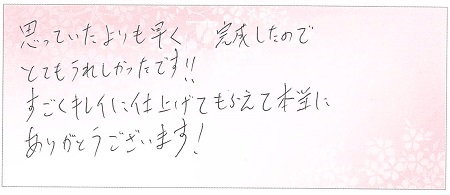 思っていたよりも早く 完成したので
とてもうれしかったです!!
すごくキレイに仕上げてもらえて本当に
ありがとうございます!